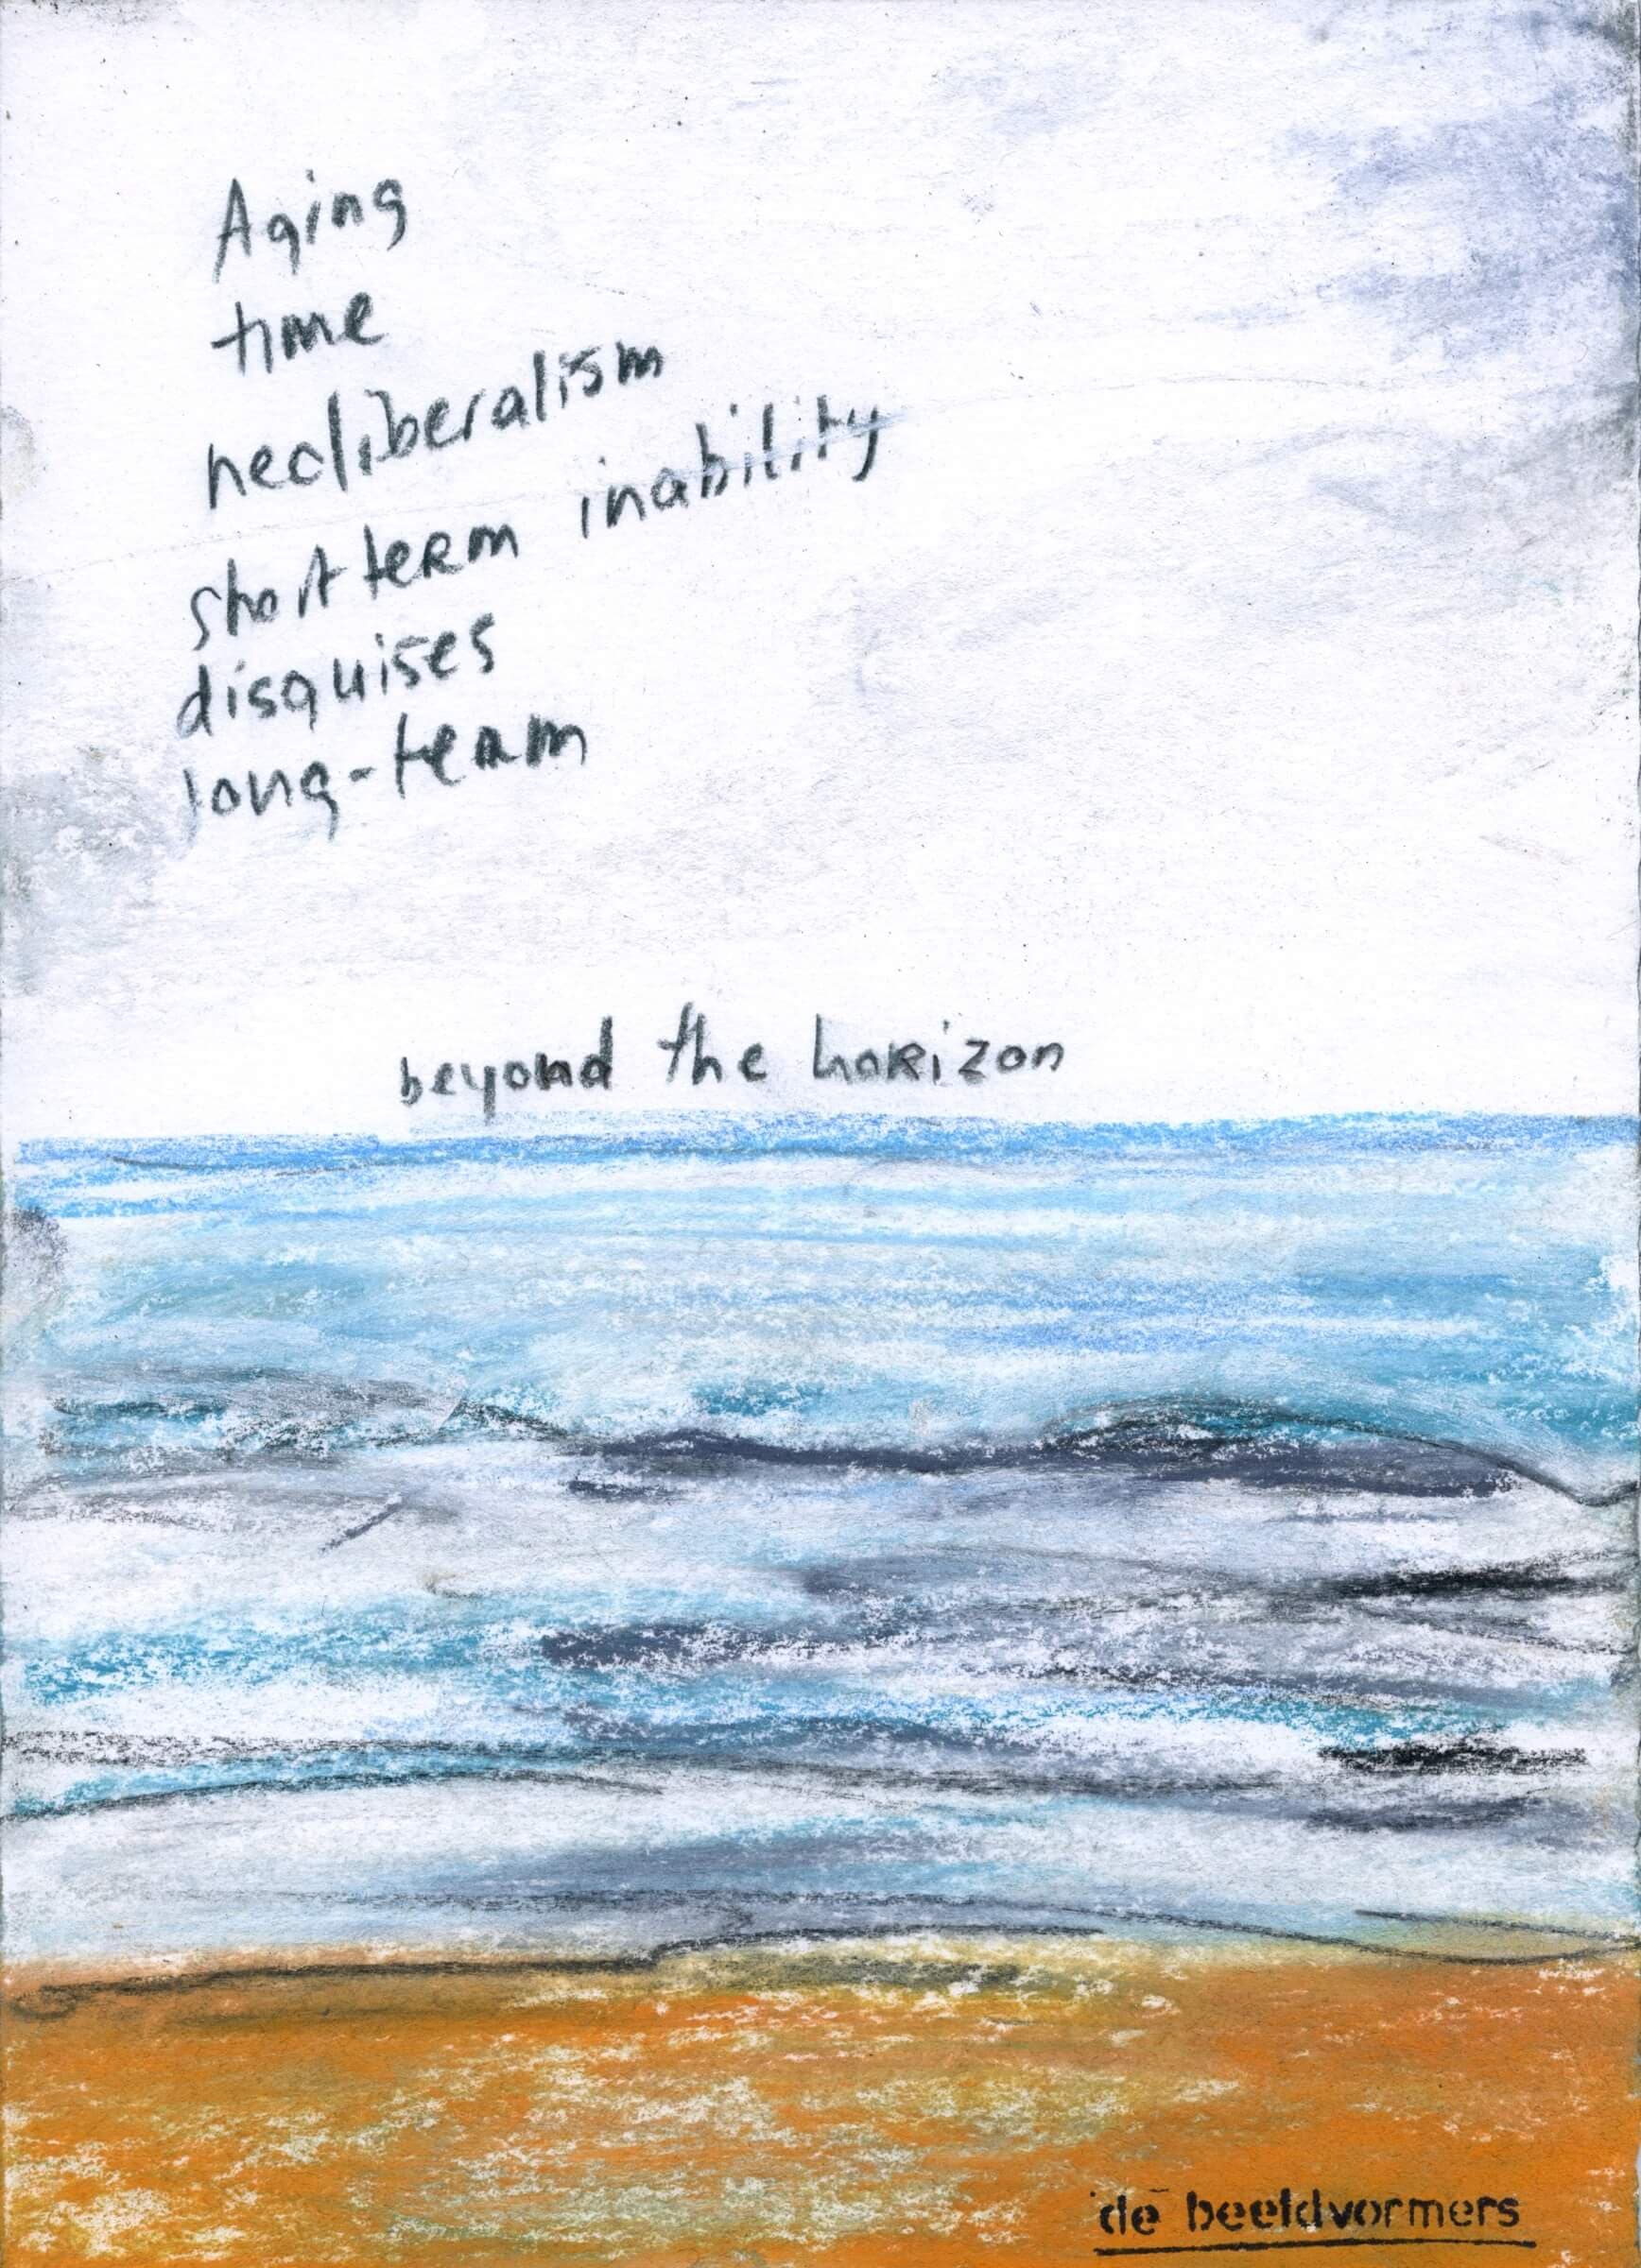 Aging
time
neoliberalism
short term inability
disguises
long-term
beyond the horizon
de beeldvormers